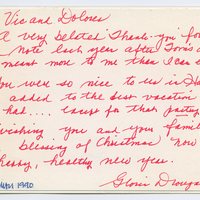 Vic and Dolores
A very belated Thank-you for
note last year after Tom's
meant more to me than I can
You were so nice to us in
added to the best vacation
had.... except for that
wishing you and your
blessing of Christmas now
happy, healthy new year.
Gloria
1990